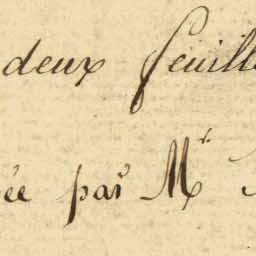 deux feuill
ée par Mr